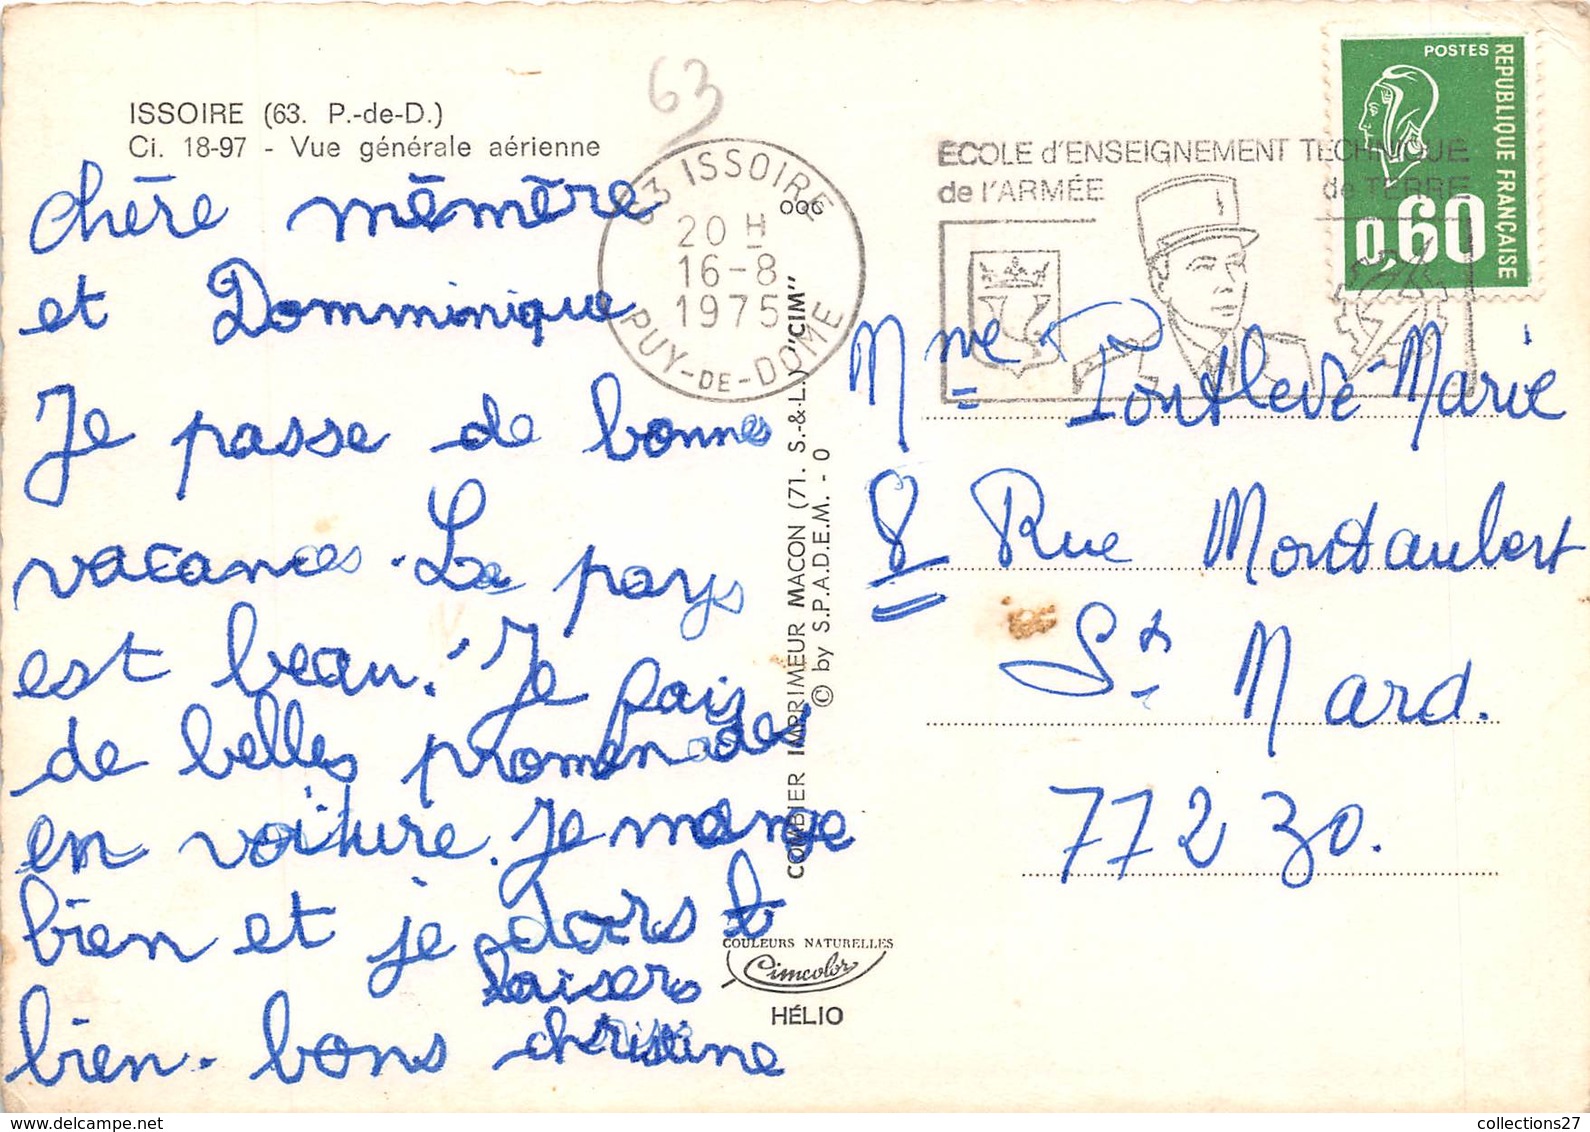 ISSOIRE (63. P.-de-D.)
Ci. 18-97 - Vue générale aérienne
63
chère mémère
et Domminique
Je passe de bonnes
vacances. Le pays
est beau. Je fais
de belles promenades
en voiture. Je mange
bien et je dors
bien. bons baisers
christine
63 ISSOIRE
20 H
16-8
1975
PUY-DE-DOME
ECOLE d'ENSEIGNEMENT TECHNIQUE
de l'ARMÉE de TERRE
POSTES
REPUBLIQUE FRANÇAISE
0,60
COMBIER IMPRIMEUR MACON (71. S.-&-L.) "CIM"
© by S.P.A.D.E.M. - 0
COULEURS NATURELLES
Cimcolor
HÉLIO
Mme Pontlevé Marie
8 Rue Montaubert
St Mard.
77230.
collections27